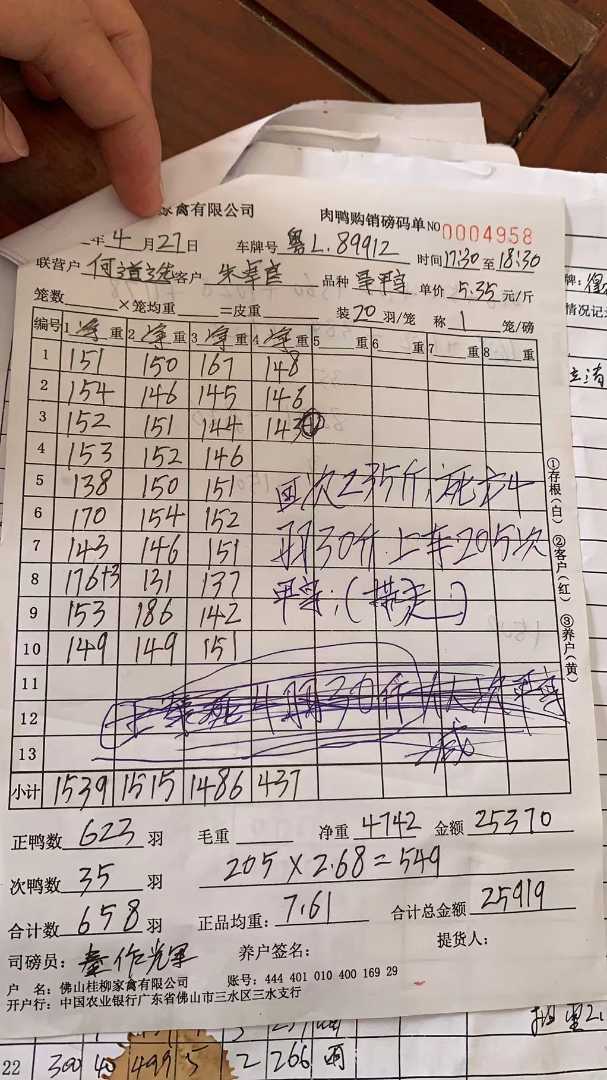 家禽有限公司 肉鸭购销磅码单 NO 0004958
年 4 月 27 日 车牌号 粤L.89912 时间 17:30 至 18:30
联营户 何道 客户 朱 品种 单价 5.35 元/斤
笼数 ×笼均重 =皮重 装 20 羽/笼 称 1 笼/磅
编号 1 净 重 2 净 重 3 净 重 4 净 重 5 重 6 重 7 重 8 重
1 151 150 167 148
2 154 146 145 146
3 152 151 144 143
4 153 152 146
5 138 150 151 次235斤,死
6 170 154 152
7 143 146 151 羽30斤.上车205次
8 176+3 131 137
9 153 186 142
10 149 149 151
11
12
13 减
小计 1539 1515 1486 437
①存根(白) ②客户(红) ③养户(黄)
正鸭数 623 羽 毛重 净重 4742 金额 25370
次鸭数 35 羽 205×2.68=549
合计数 658 羽 正品均重: 7.61 合计总金额 25919
司磅员: 养户签名: 提货人:
户 名: 佛山桂柳家禽有限公司 账号: 444 401 010 400 169 29
开户行: 中国农业银行广东省佛山市三水区三水支行
22 300 40 499 5 2 266